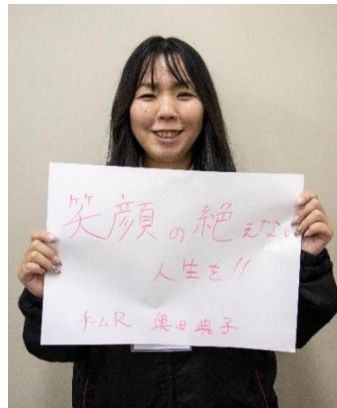 笑顔の絶えない
人生を!!
チームR 奥田典子